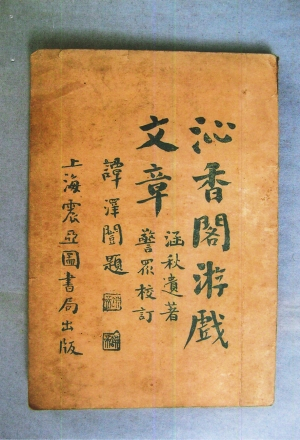 沁香閣游戲
文章
涵秋遺著
警眾校訂
譚澤闓題
上海震亞圖書局出版